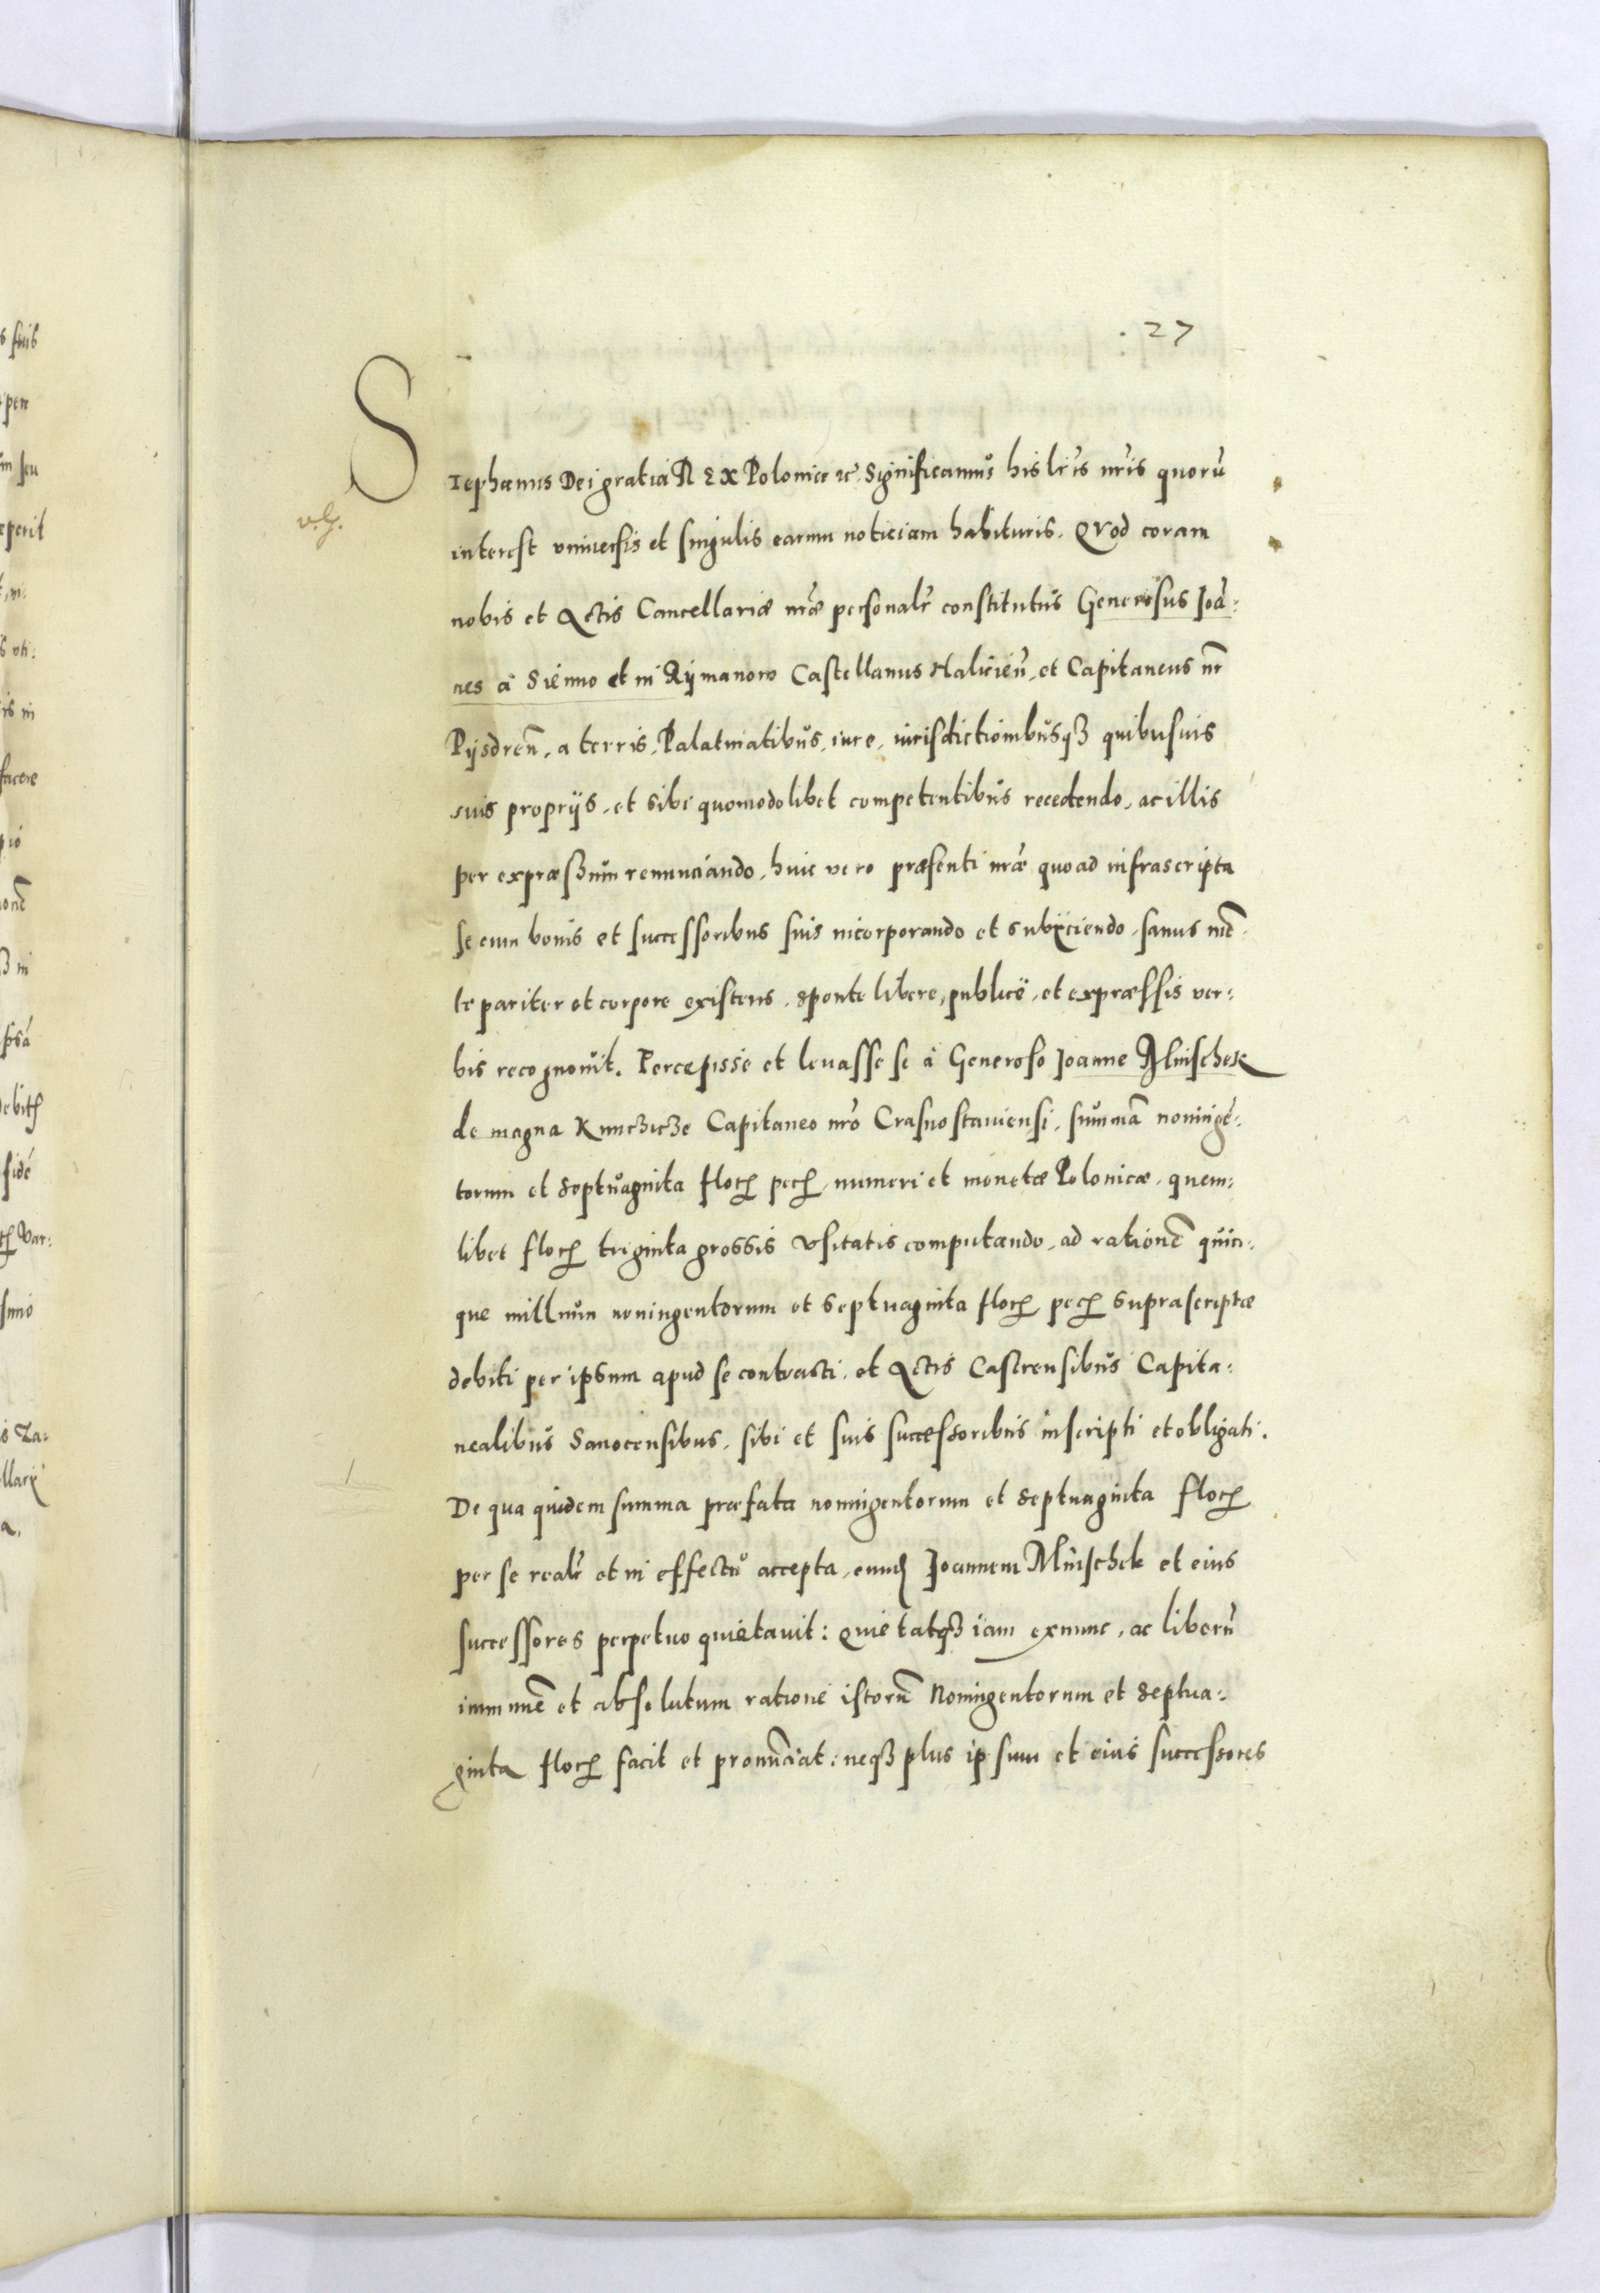 27
Stephanus Dei gratia REX Poloniæ etc. Significamus his lr̃is nr̃is quorũ
interest vniuersis et singulis earum noticiam habituris. QVod coram
nobis et Actis Cancellariæ nr̃æ personalr̃ constitutus Generosus Joã:
nes à Sienno et in Rÿmanow Castellanus Haliciẽn, et Capitaneus nr̃
Pÿsdreñ, a terris, Palatinatibus, iure, iurisdictionibusqȝ quibusuis
suis proprÿs, et sibi quomodolibet competentibus recedendo, ac illis
per expræssum renunciando, huic vero præsenti nr̃æ quoad infrascripta
se cum bonis et successoribus suis incorporando et subÿciendo, sanus mẽ:
te pariter et corpore existens, sponte libere, publicè, et expræssis ver:
bis recognouit. Percepisse et leuasse se à Generoso Joanne Mnischek
de magna Kuncȝicȝe Capitaneo nr̃o Crasnostauiensi, summã noningẽ:
torum et septuaginta floꝝ pecꝝ, numeri et monetæ Polonicæ, quem:
libet floꝝ triginta grossis vsitatis computando, ad rationẽ quin:
que millium noningentorum et septuaginta floꝝ pecꝝ suprascriptæ
debiti per ipsum apud se contracti, et Actis Castrensibus Capita:
nealibus Sanocensibus, sibi et suis successoribus inscripti et obligati.
De qua quidem summa præfata noningentorum et septuaginta floꝝ
per se realr̃ et in effectu accepta, eund Joannem Mnischek et eius
successores perpetuo quietauit: quietatqȝ iam exnunc, ac liberũ
immunẽ et absolutum ratione istorũ Noningentorum et septua:
ginta floꝝ facit et pronunciat: neqȝ plus ipsum et eius successores